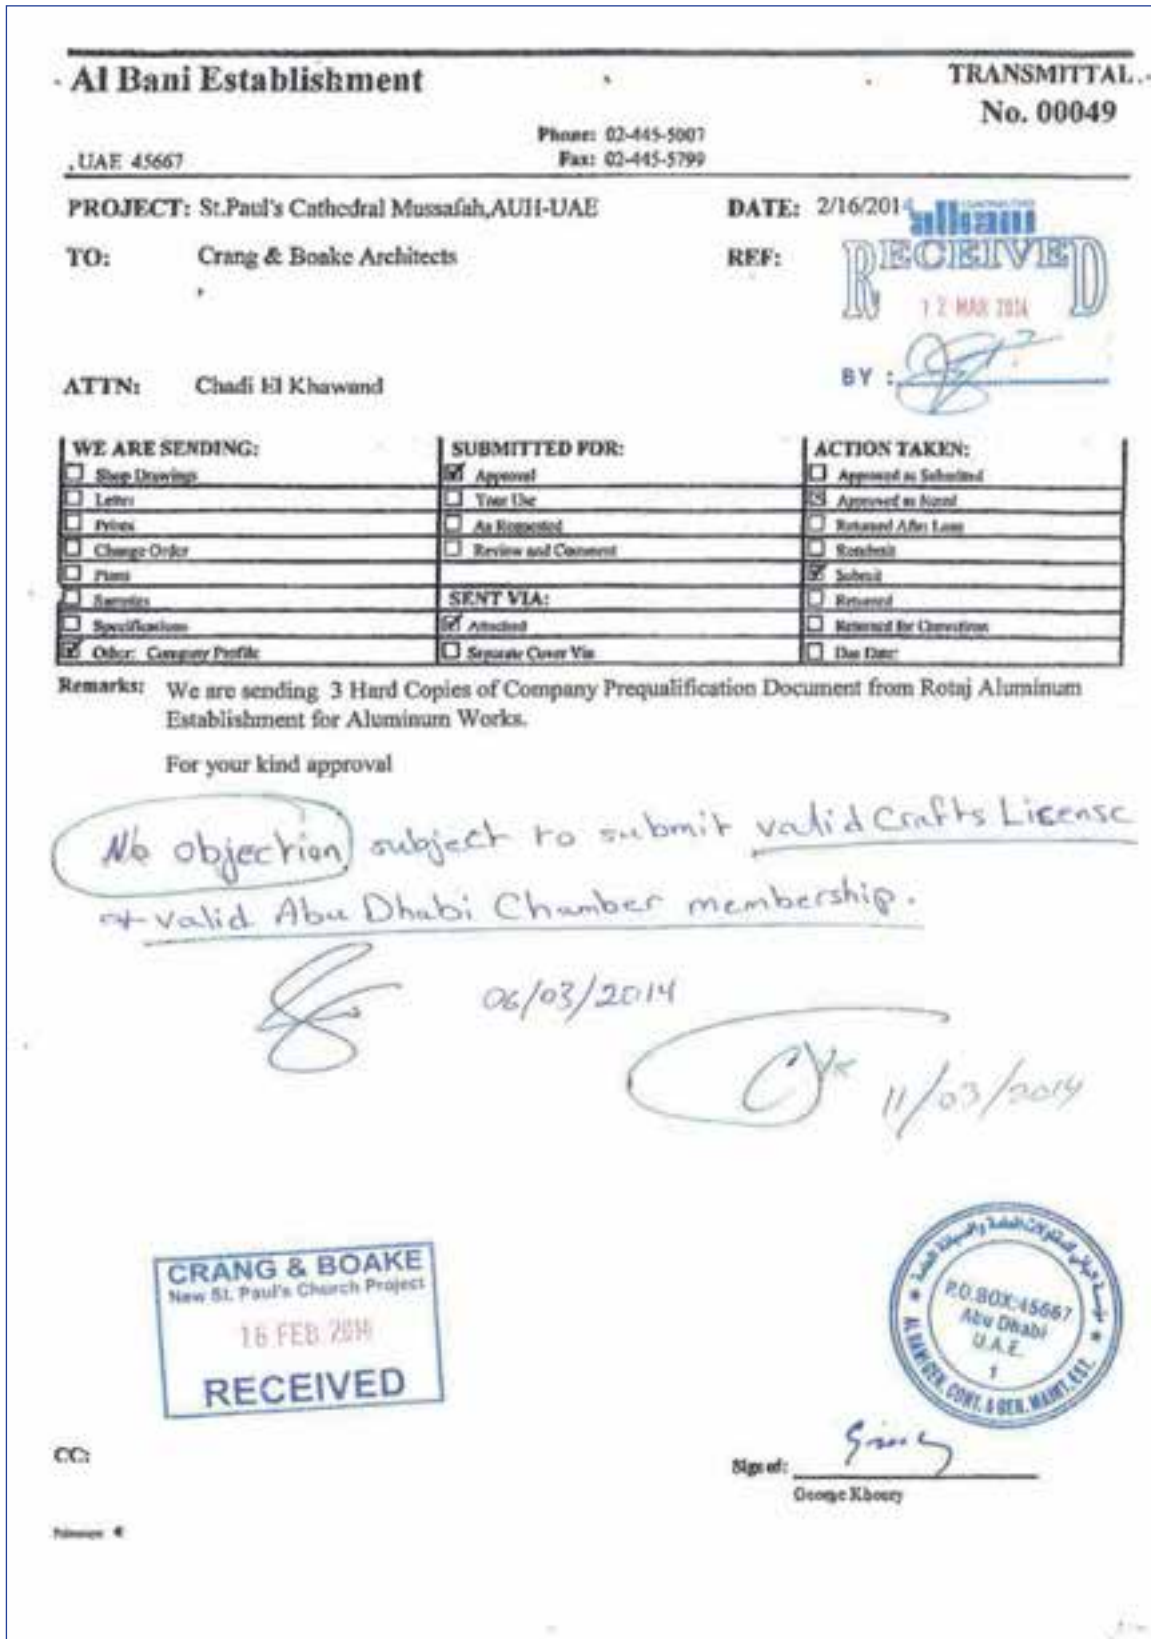 Al Bani Establishment
TRANSMITTAL
No. 00049
Phone: 02-445-5007
, UAE 45667
Fax: 02-445-5799
PROJECT: St.Paul's Cathedral Mussafah,AUH-UAE
DATE: 2/16/2014
TO: Crang & Boake Architects
REF:
RECEIVED
12 MAR 2014
BY :
ATTN: Chadi El Khawand
WE ARE SENDING: SUBMITTED FOR: ACTION TAKEN:
Shop Drawings Approval Approved as Submitted
Letter Your Use Approved as Noted
Prints As Requested Returned After Loan
Change Order Review and Comment
Plans Submit
Samples SENT VIA: Returned
Specifications Attached Returned for Corrections
Other: Company Profile Separate Cover Via Due Date:
Remarks: We are sending 3 Hard Copies of Company Prequalification Document from Rotaj Aluminum
Establishment for Aluminum Works.
For your kind approval
No objection subject to submit valid Crafts License
+ valid Abu Dhabi Chamber membership.
06/03/2014
11/03/2014
CRANG & BOAKE
New St. Paul's Church Project
16 FEB 2014
RECEIVED
P.O.BOX:45667
Abu Dhabi
U.A.E.
1
AL BANI GEN. CONT. & GEN. MAINT. EST.
CC:
Signed:
George Khoury